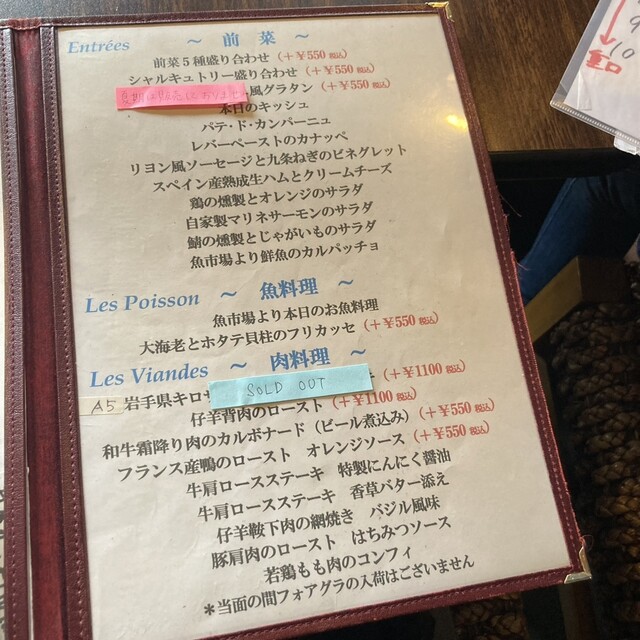 Entrées ～ 前 菜 ～
前菜5種盛り合わせ（＋￥550 税込）
シャルキュトリー盛り合わせ（＋￥550 税込）
風グラタン（＋￥550 税込）
本日のキッシュ
パテ・ド・カンパーニュ
レバーペーストのカナッペ
リヨン風ソーセージと九条ねぎのビネグレット
スペイン産熟成生ハムとクリームチーズ
鶏の燻製とオレンジのサラダ
自家製マリネサーモンのサラダ
鯖の燻製とじゃがいものサラダ
魚市場より鮮魚のカルパッチョ
Les Poisson ～ 魚料理 ～
魚市場より本日のお魚料理
大海老とホタテ貝柱のフリカッセ（＋￥550 税込）
Les Viandes ～ 肉料理 ～
A5 岩手県キロサ SOLD OUT （＋￥1100 税込）
仔羊背肉のロースト（＋￥1100 税込）
和牛霜降り肉のカルボナード（ビール煮込み）（＋￥550 税込）
フランス産鴨のロースト オレンジソース（＋￥550 税込）
牛肩ロースステーキ 特製にんにく醤油
牛肩ロースステーキ 香草バター添え
仔羊鞍下肉の網焼き バジル風味
豚肩肉のロースト はちみつソース
若鶏もも肉のコンフィ
＊当面の間フォアグラの入荷はございません